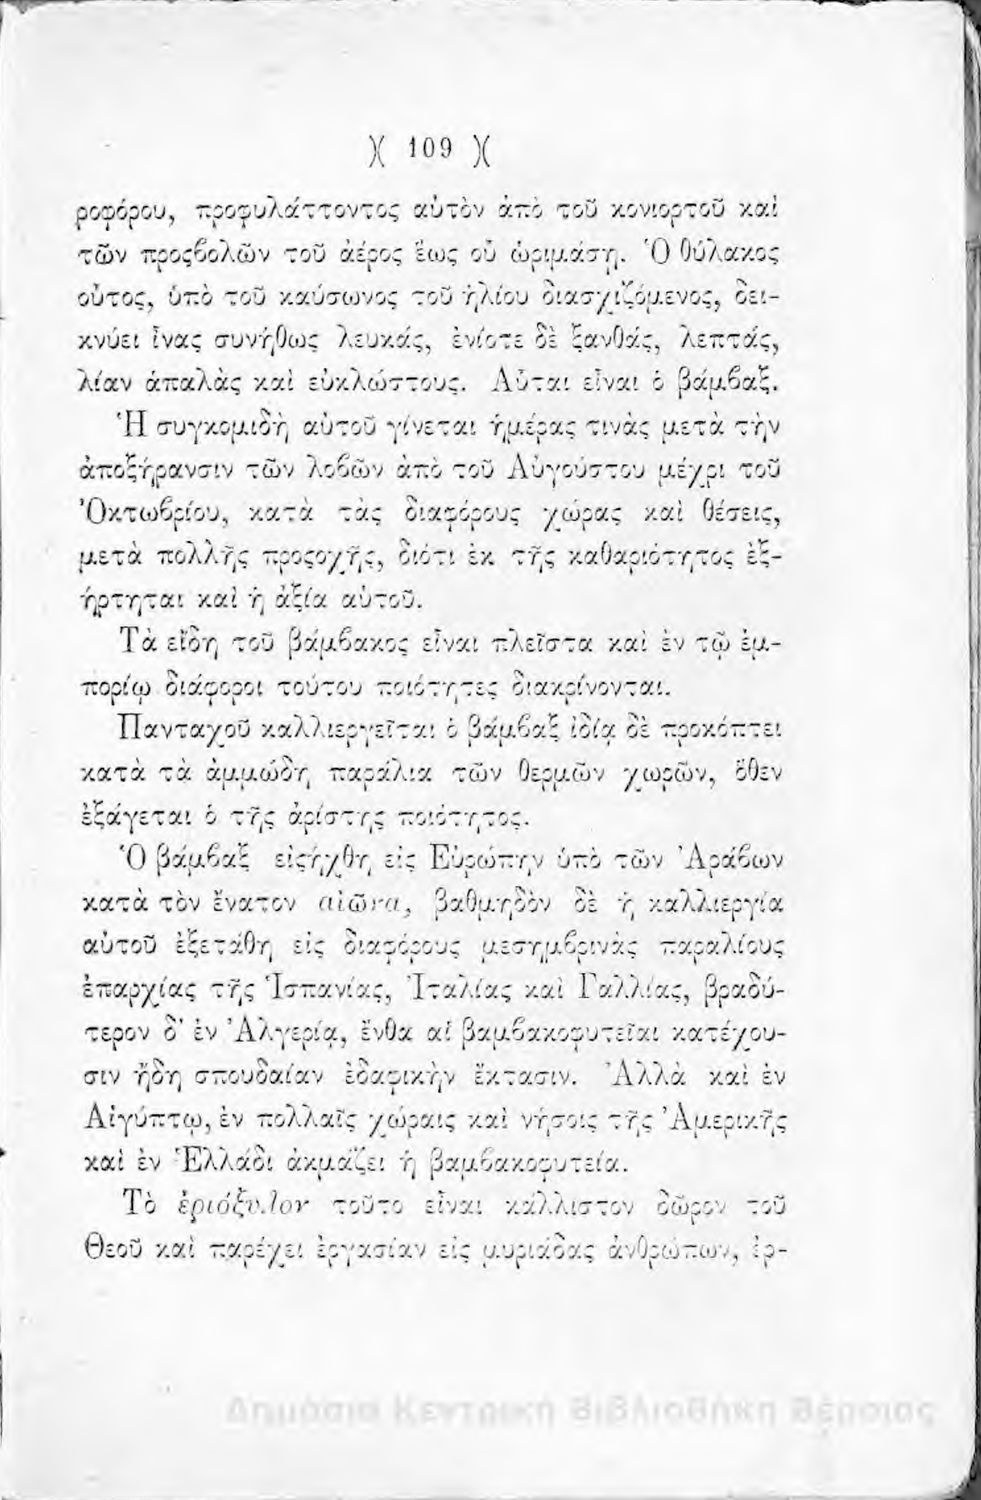 )( 109 )(
ροφόρου, προφυλάττοντος αὐτὸν ἀπὸ τοῦ κονιορτοῦ καὶ
τῶν προςβολῶν τοῦ ἀέρος ἕως οὗ ὡριμάσῃ. Ὁ θύλακος
οὗτος, ὑπὸ τοῦ καύσωνος τοῦ ἡλίου διασχιζόμενος, δει-
κνύει ἶνας συνήθως λευκάς, ἐνίοτε δὲ ξανθάς, λεπτάς,
λίαν ἁπαλὰς καὶ εὐκλώστους. Αὗται εἶναι ὁ βάμβαξ.
Ἡ συγκομιδὴ αὐτοῦ γίνεται ἡμέρας τινὰς μετὰ τὴν
ἀποξήρανσιν τῶν λοβῶν ἀπὸ τοῦ Αὐγούστου μέχρι τοῦ
Ὀκτωβρίου, κατὰ τὰς διαφόρους χώρας καὶ θέσεις,
μετὰ πολλῆς προςοχῆς, διότι ἐκ τῆς καθαριότητος ἐξ-
ήρτηται καὶ ἡ ἀξία αὐτοῦ.
Τὰ εἴδη τοῦ βάμβακος εἶναι πλεῖστα καὶ ἐν τῷ ἐμ-
πορίῳ διάφοροι τούτου ποιότητες διακρίνονται.
Πανταχοῦ καλλιεργεῖται ὁ βάμβαξ ἰδίᾳ δὲ προκόπτει
κατὰ τὰ ἀμμώδη παράλια τῶν θερμῶν χωρῶν, ὅθεν
ἐξάγεται ὁ τῆς ἀρίστης ποιότητος.
Ὁ βάμβαξ εἰςήχθη εἰς Εὐρώπην ὑπὸ τῶν Ἀράβων
κατὰ τὸν ἔνατον αἰῶνα, βαθμηδὸν δὲ ἡ καλλιεργία
αὐτοῦ ἐξετάθη εἰς διαφόρους μεσημβρινὰς παραλίους
ἐπαρχίας τῆς Ἱσπανίας, Ἰταλίας καὶ Γαλλίας, βραδύ-
τερον δ' ἐν Ἀλγερίᾳ, ἔνθα αἱ βαμβακοφυτεῖαι κατέχου-
σιν ἤδη σπουδαίαν ἐδαφικὴν ἔκτασιν. Ἀλλὰ καὶ ἐν
Αἰγύπτῳ, ἐν πολλαῖς χώραις καὶ νήσοις τῆς Ἀμερικῆς
καὶ ἐν Ἑλλάδι ἀκμάζει ἡ βαμβακοφυτεία.
Τὸ ἐριόξυλον τοῦτο εἶναι κάλλιστον δῶρον τοῦ
Θεοῦ καὶ παρέχει ἐργασίαν εἰς μυριάδας ἀνθρώπων, ἐρ-
Δημόσια Κεντρική Βιβλιοθήκη Βέροιας